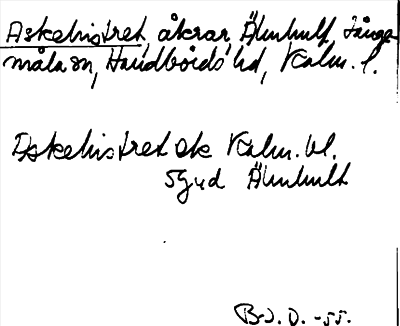 Askehistret, åkrar, Älmhult, Långa-
måla sn, Handbörds hd, Kalm. l.
Askehistret ek Kalm. bl.
5 Syd Älmhult
B-J. O. -55.